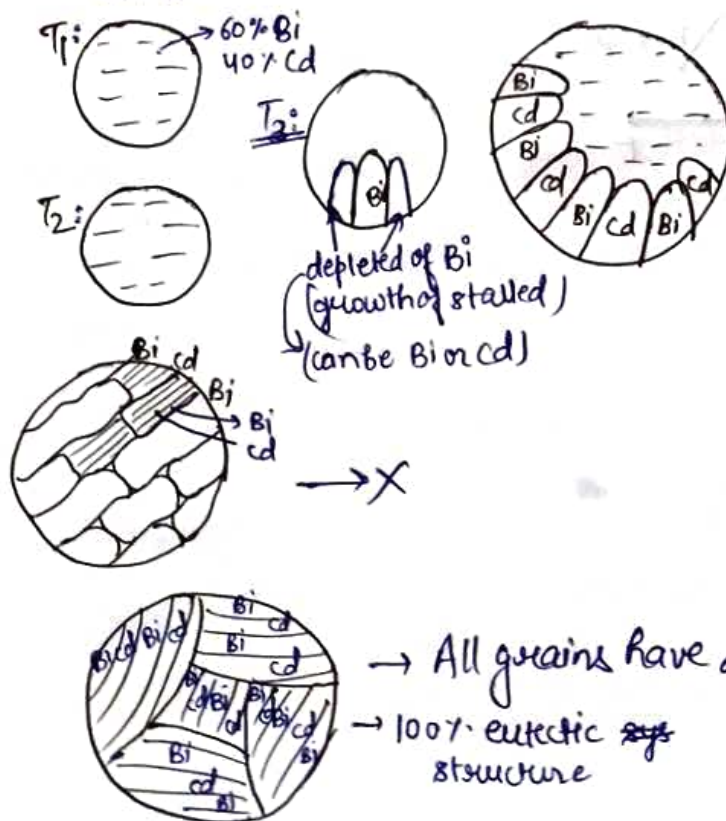 T1:
60% Bi
40% Cd
T2:
T3:
Bi
depleted of Bi
(growth of stalled)
(can be Bi or Cd)
Bi
Cd
Bi
Cd
Bi
Cd
Bi
Cd
Bi Cd
Bi
Bi
Cd
→ X
Bi Cd Bi Cd
Bi
Cd
Bi
Cd
Bi Cd Bi Cd
Bi Cd Bi Cd Bi
Bi
Cd
Bi
→ All grains have
→ 100% eutectic sys
structure